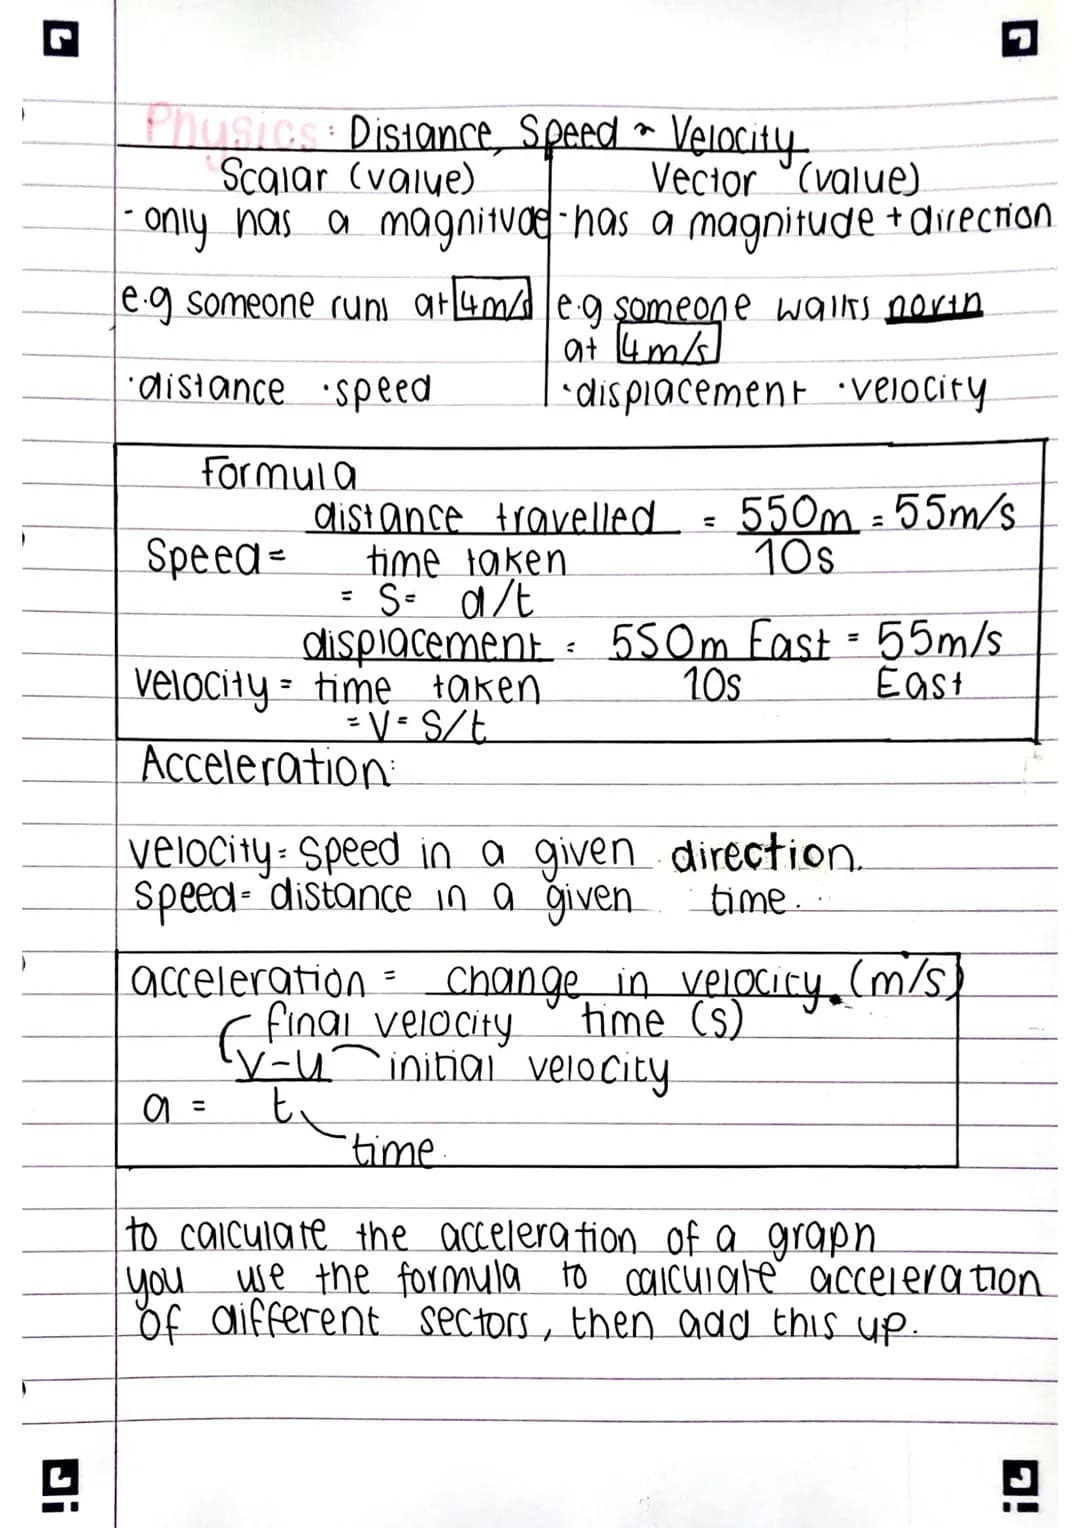 Physics: Distance, Speed ~ Velocity
Scalar (value)
- only has a magnitude
e.g someone runs at 4m/s
·distance ·speed
Vector (value)
-has a magnitude + direction
e.g someone walks north
at 4m/s
·displacement ·velocity
Formula
distance travelled = 550m = 55m/s
Speed = time taken 10s
= S= d/t
displacement = 550m East = 55m/s
velocity = time taken 10s East
= V = S/t
Acceleration:
velocity = speed in a given direction.
speed = distance in a given time.
acceleration = change in velocity (m/s)
final velocity time (s)
v-u initial velocity
a = t
time.
to calculate the acceleration of a graph
you use the formula to calculate acceleration
of different sectors, then add this up.